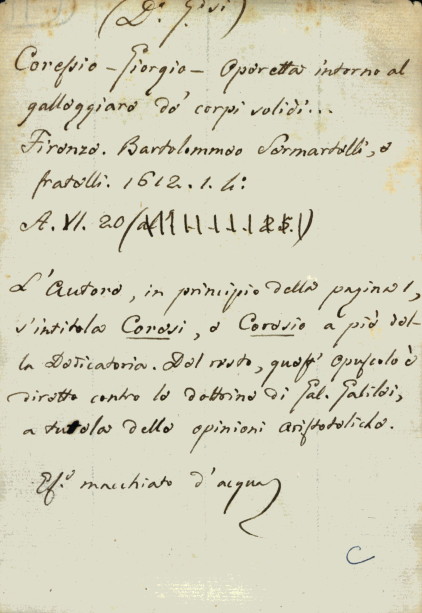 (D.r Gisi)
Coressio - Giorgio - Operetta intorno al
galleggiare de' corpi solidi...
Firenze. Bartolommeo Sermartelli, e
fratelli. 1612. 1. li:
A. VI. 20
L'Autore, in principio della pagina 1,
s'intitola Coresi, e Coresio a piè del-
la Dedicatoria. Del resto, quest' opuscolo è
diretto contro le dottrine di Gal. Galilei,
a tutela delle opinioni aristoteliche.
Es.e macchiato d'acqua
C